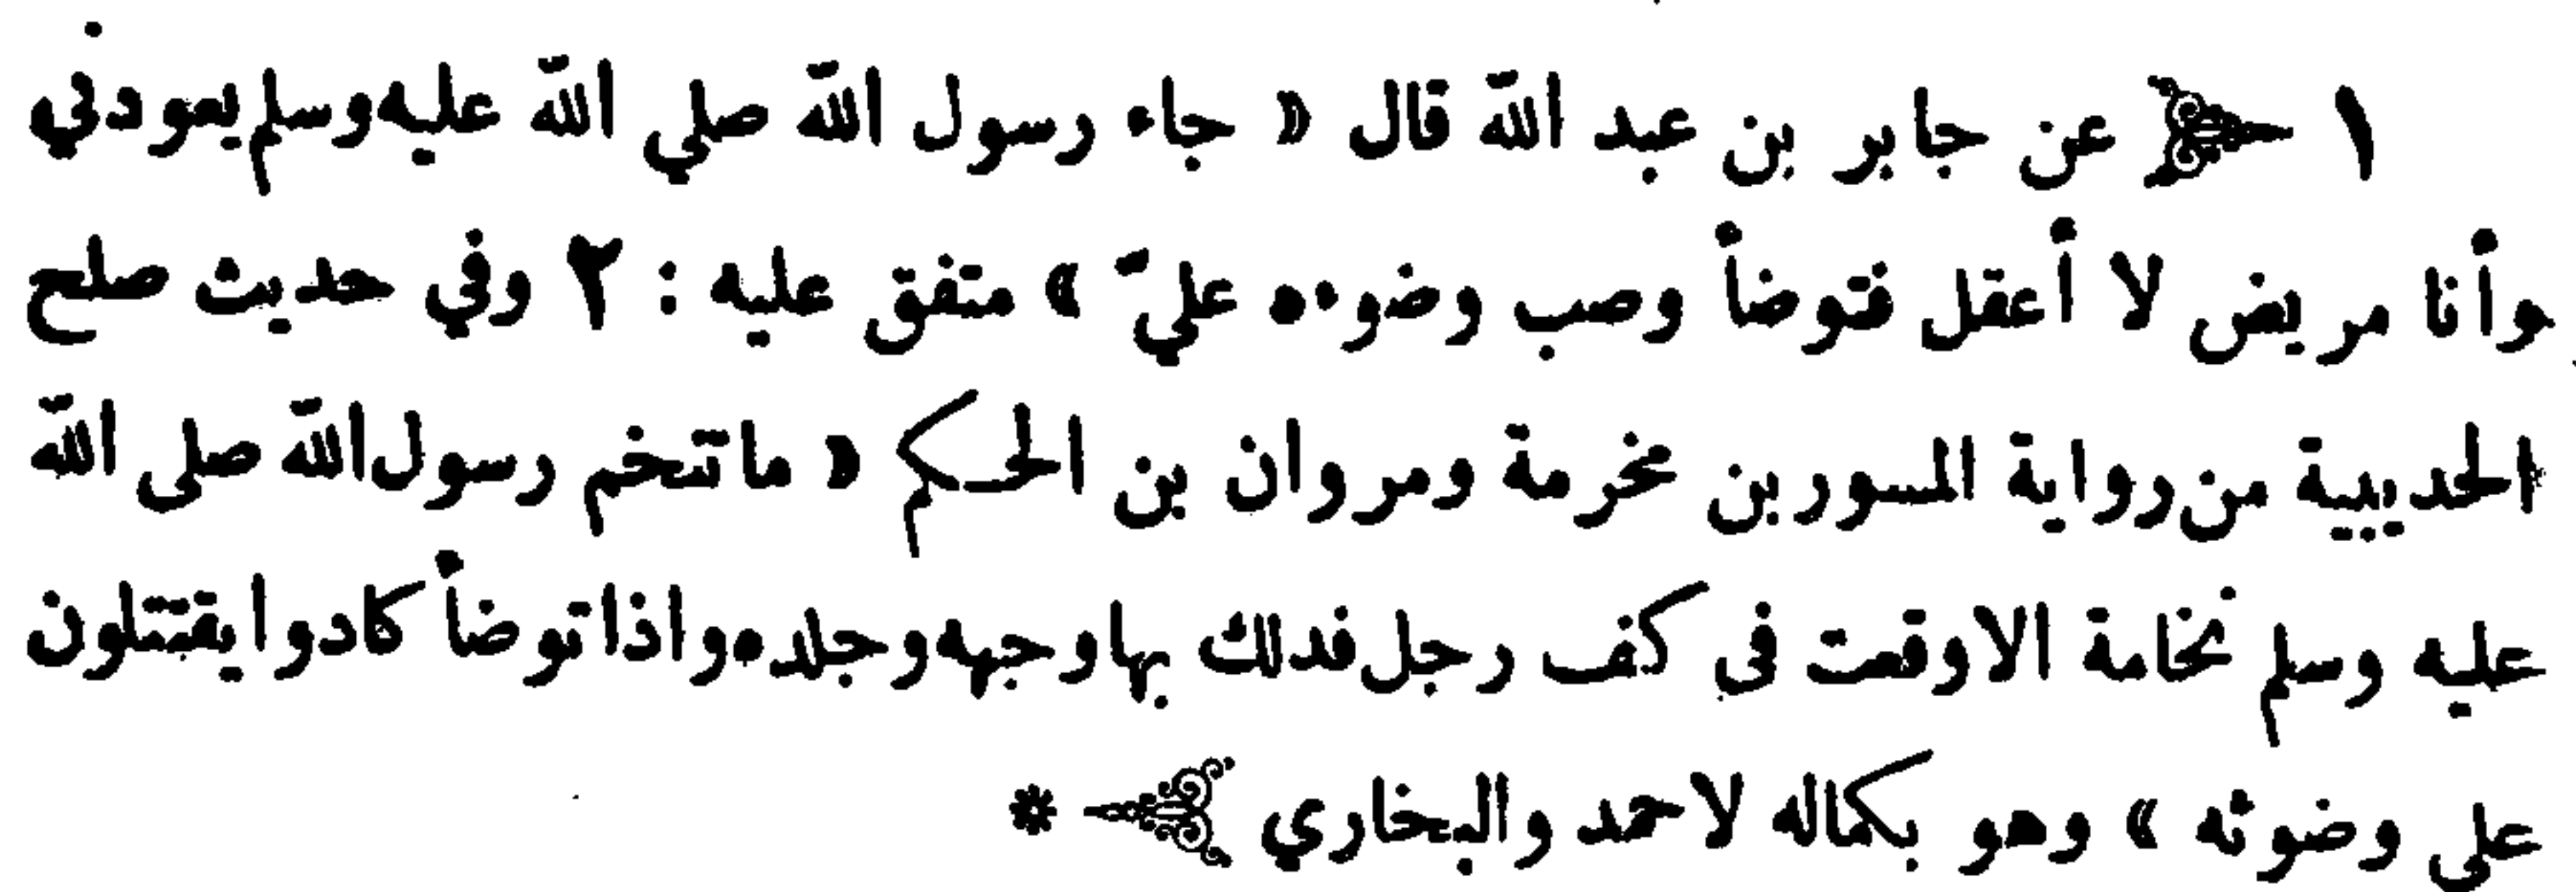 ١ عن جابر بن عبد الله قال « جاء رسول الله صلي الله عليه وسلم يعودني
وأنا مريض لا أعقل فتوضأ وصب وضوءه عليّ » متفق عليه : ٢ وفي حديث صلح
الحديبية من رواية المسور بن مخرمة ومروان بن الحكم « ما تنخم رسول الله صلى الله
عليه وسلم نخامة الا وقعت فى كف رجل فدلك بها وجهه وجلده واذا توضأ كادوا يقتتلون
على وضوئه » وهو بكماله لاحمد والبخاري *